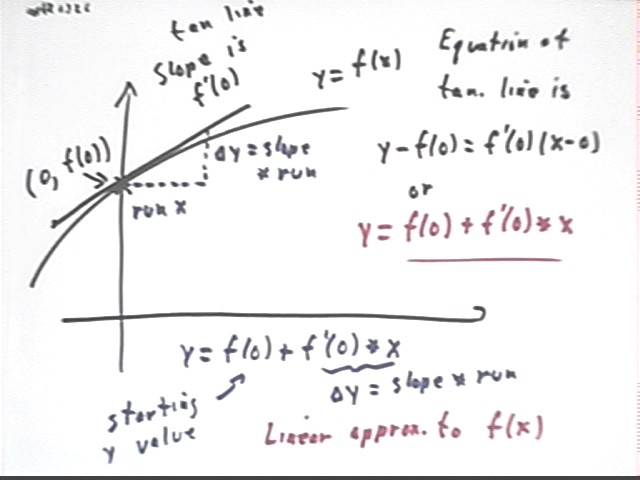 tan line
slope is
f'(0)
y = f(x)
(0, f(0))
Δy = slope
* run
run x
Equation of
tan. line is
y - f(0) = f'(0) (x-0)
or
y = f(0) + f'(0) * x
y = f(0) + f'(0) * x
starting
y value
Δy = slope * run
Linear approx. to f(x)